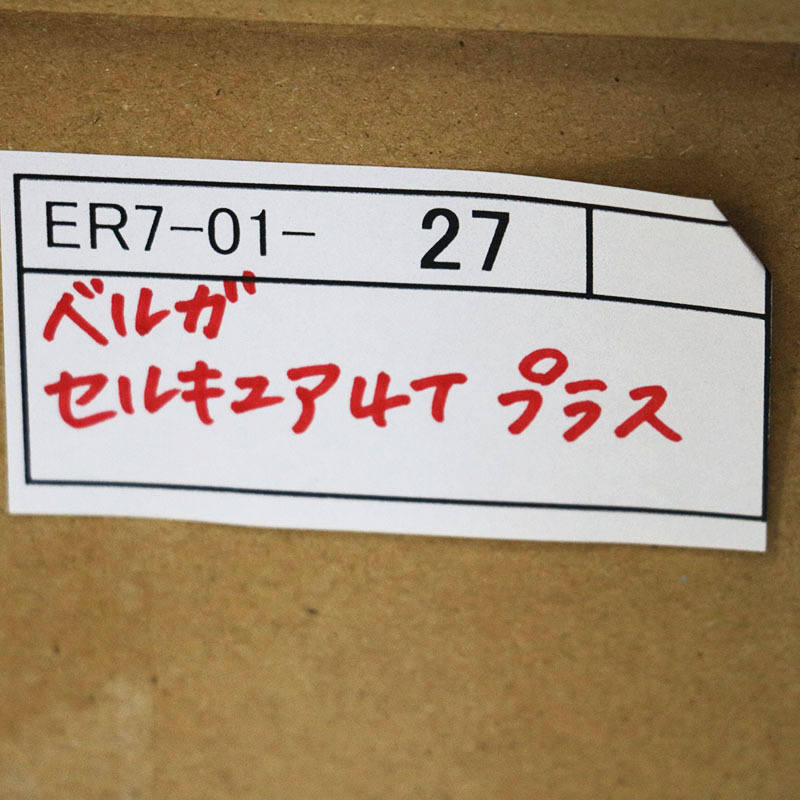 ER7-01- 27
ベルガ
セルキュア4T プラス